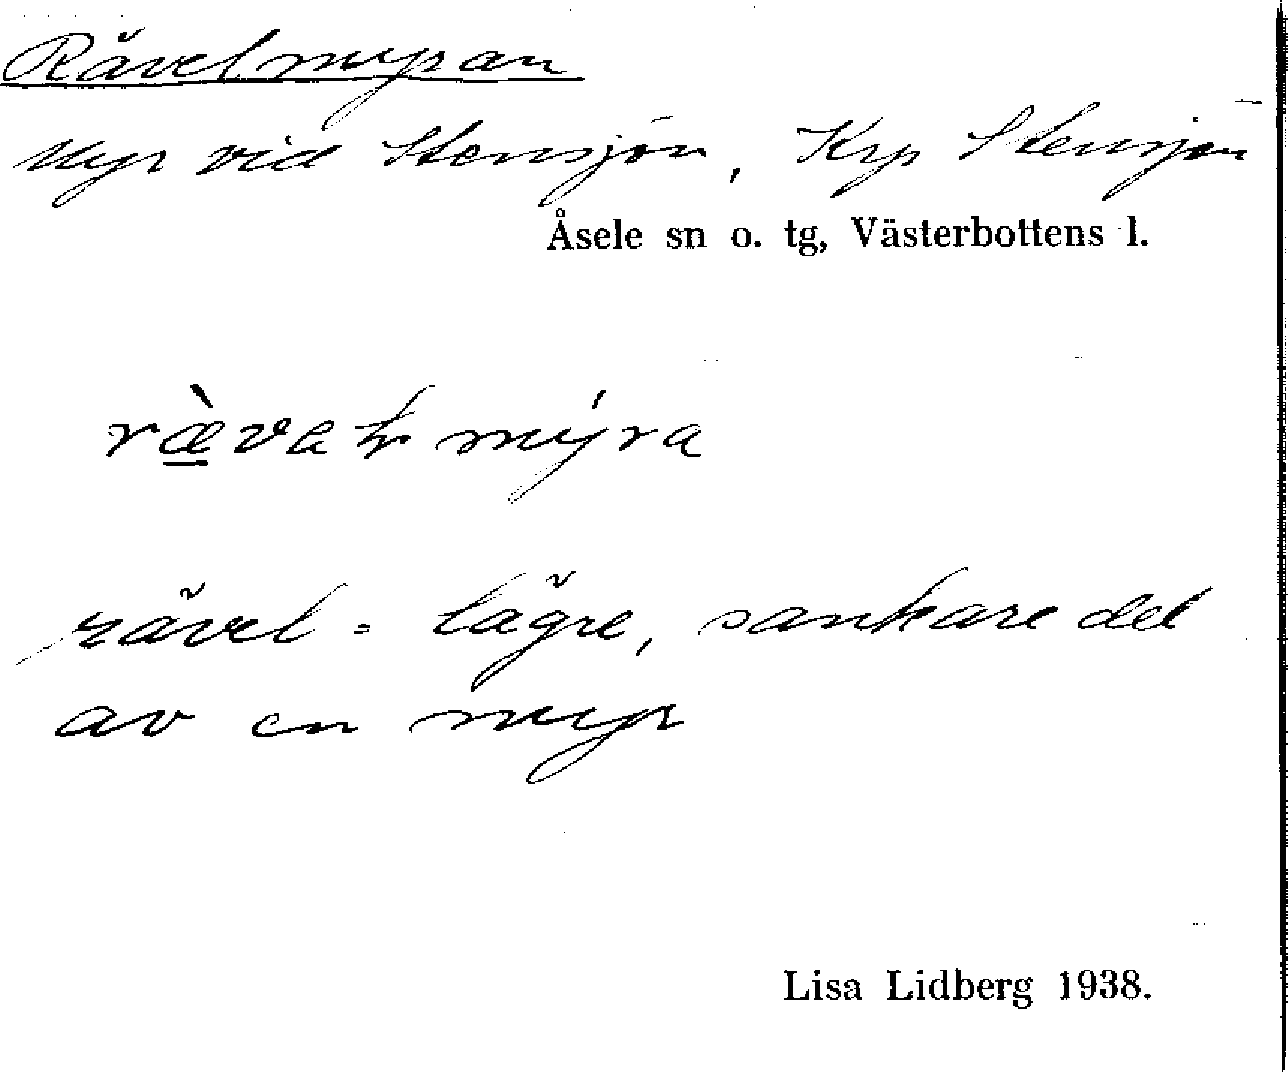 Rävelmyran
Myr vid Stensjön, Krp Stensjön
Åsele sn o. tg, Västerbottens l.
ræ̀valmýra
rävel = lägre, sankare del
av en myr
Lisa Lidberg 1938.